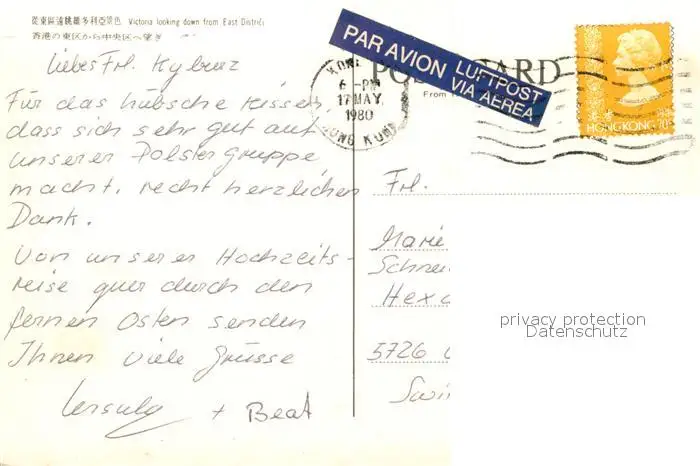 從東區遠眺維多利亞景色 Victoria looking down from East Distri
香港の東区から中央区へ望き
Liebes Frl. Kyburz
Für das hübsche Kissen,
dass sich sehr gut auf
unserer Polstergruppe
macht, recht herzlichen
Dank.
Von unserer Hochzeits-
reise quer durch den
fernen Osten senden
Ihnen viele Grüsse
Ursula + Beat
PAR AVION LUFTPOST
VIA AEREA
CARD
From
HONG KONG
6 - PM
17 MAY
1980
HONG KONG
Frl.
Marie
Schnei
Hex
5726
privacy protection
Datenschutz